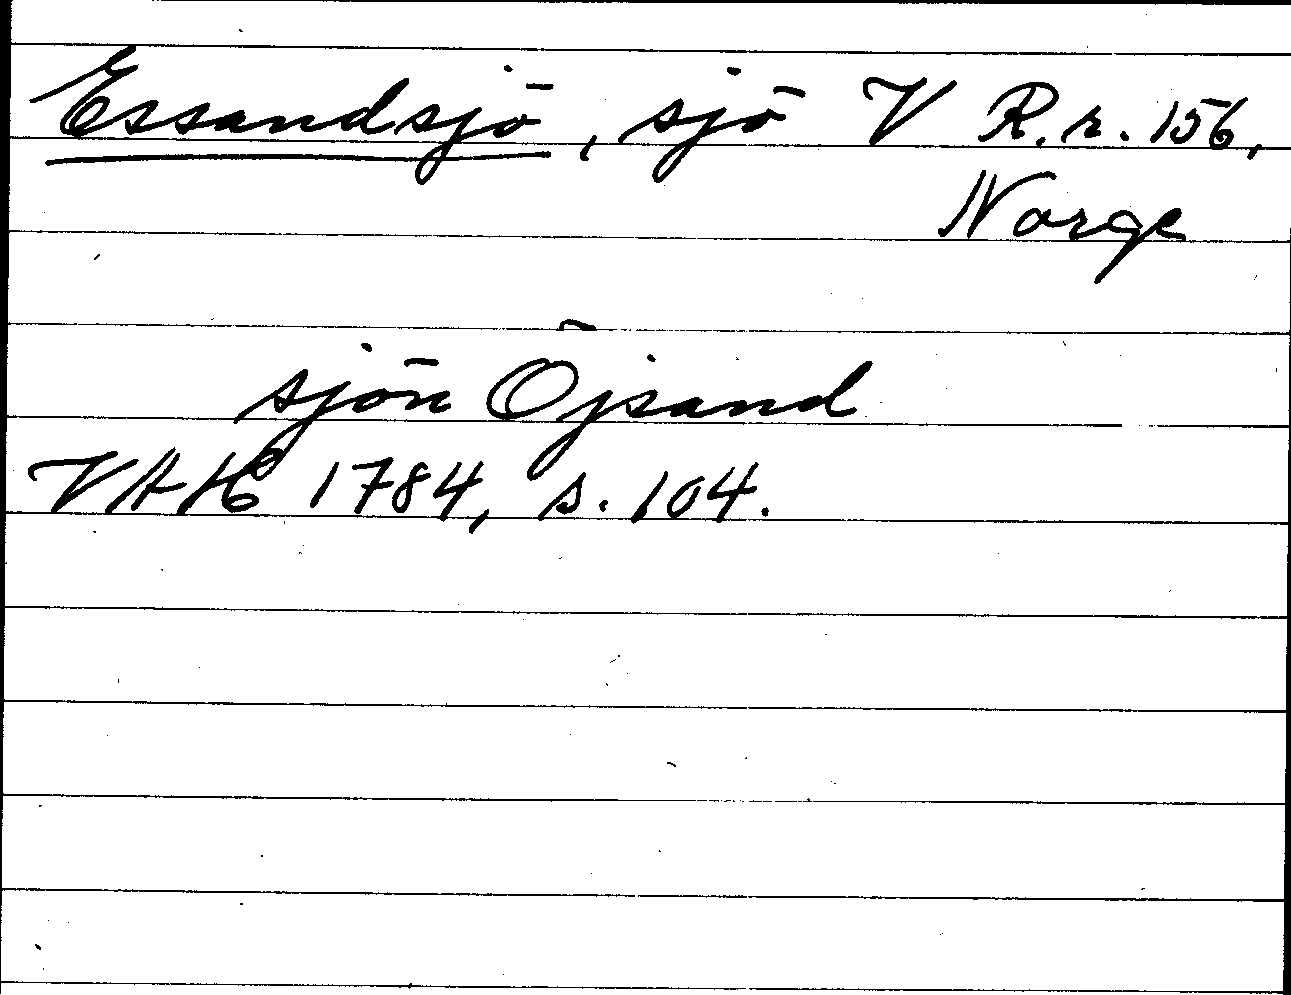 Essandsjö, sjö V R.r. 156,
Norge
sjön Öjsand
VAH 1784, s. 104.